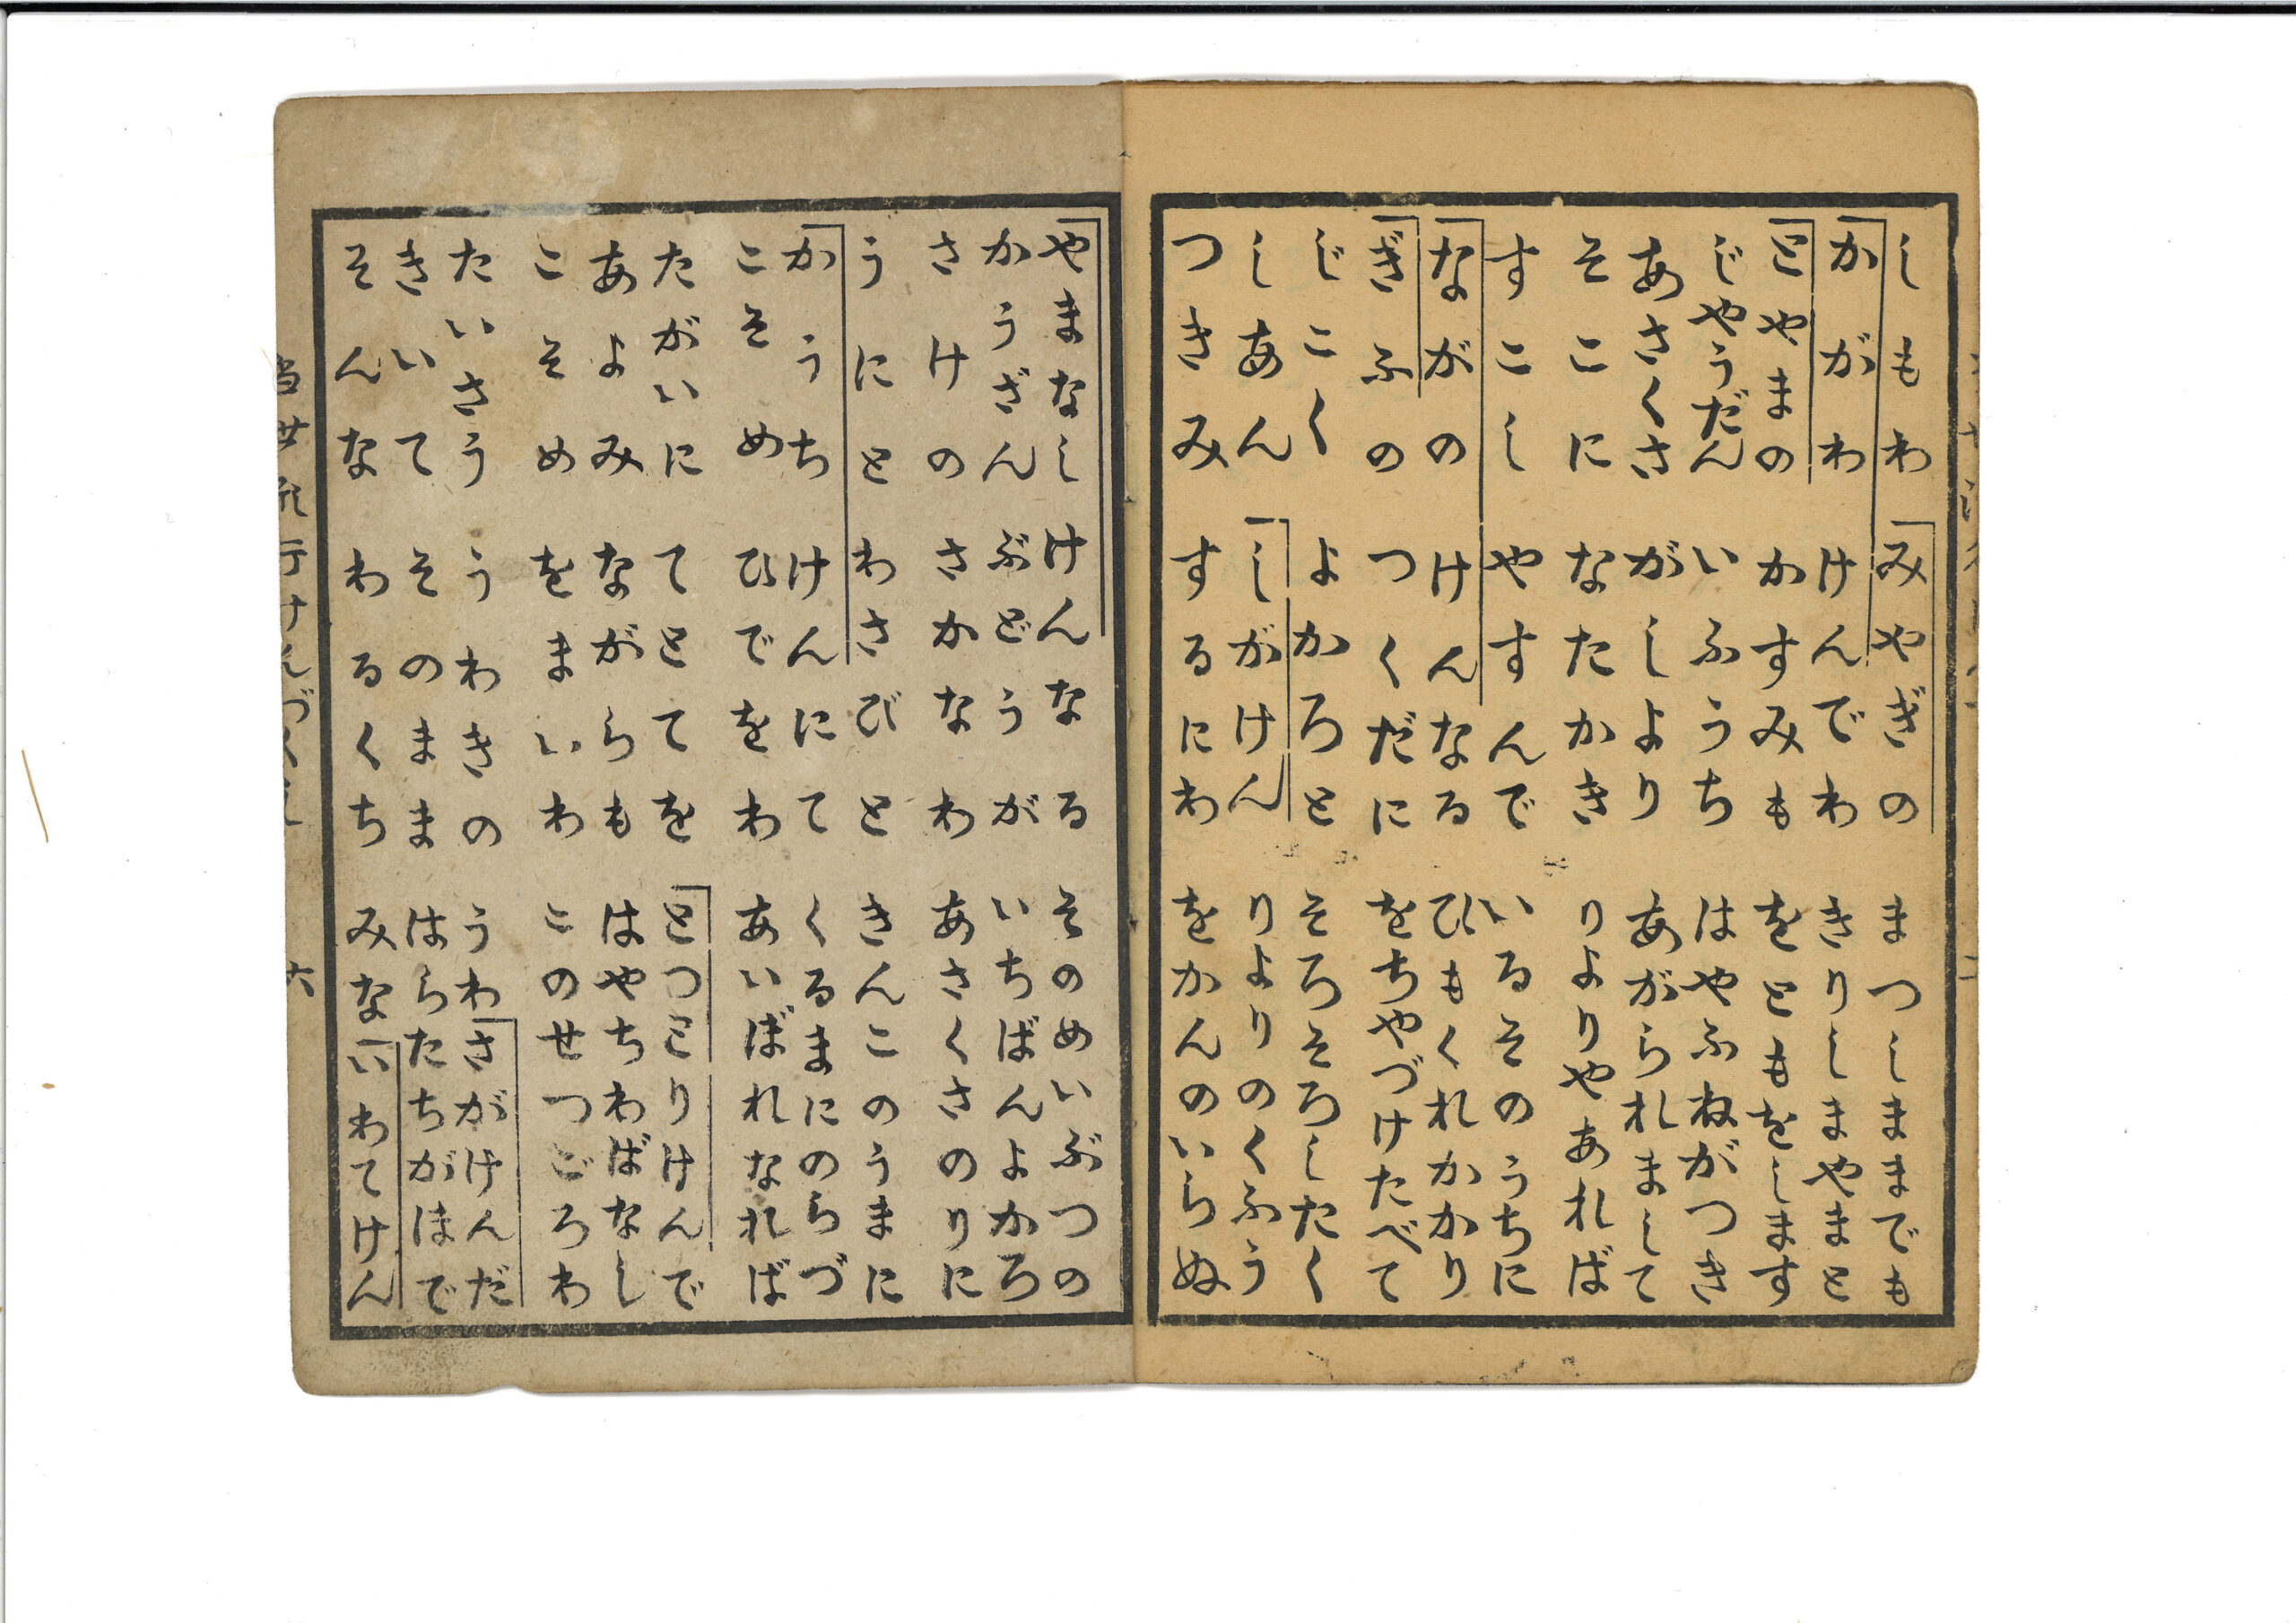 しもわ　みやぎの　まつしままでも
かがわ　けんでわ　きりしまやまと
とやまの　かすみも　をともをします
じやうだん　いふうち　はやふねがつき
あさくさ　がしより　あがられまして
そこに　なたかき　りよりやあれば
すこし　やすんで　いるそのうちに
ながの　けんなる　ひもくれかかり
ぎふの　つくだに　をちやづけたべて
じこく　よかろと　そろそろしたく
しあん　しがけん　りよりのくふう
つきみ　するにわ　をかんのいらぬ
やまなし　けんなる　そのめいぶつの
かうざん　ぶどうが　いちばんよかろ
さけの　さかなわ　あさくさのりに
うにと　わさびと　きんこのうまに
かうち　けんにて　くるまにのらづ
こそめ　ひでをわ　あいばれなれば
たがいに　てとてを　とつとりけんで
あよみ　ながらも　はやちわばなし
こそめ　をまいわ　このせつごろわ
たいさう　うわきの　うわさがけんだ
きいて　そのまま　はらたちがはで
そんな　わるくち　みないわてけん
当世流行けんづくし　六